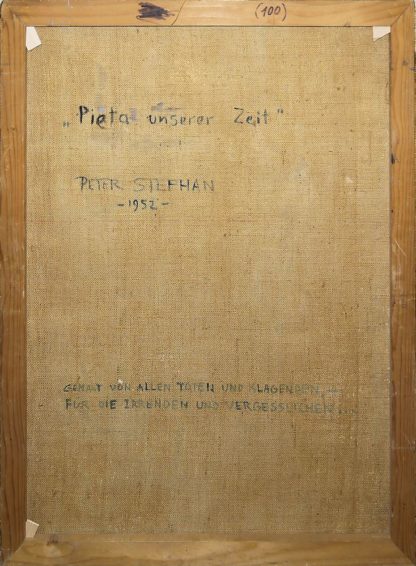 (100)
„Pieta unserer Zeit"
PETER STEPHAN
-1952-
GEMALT VON ALLEN TOTEN UND KLAGENDEN
FÜR DIE IRRENDEN UND VERGESSLICHEN...